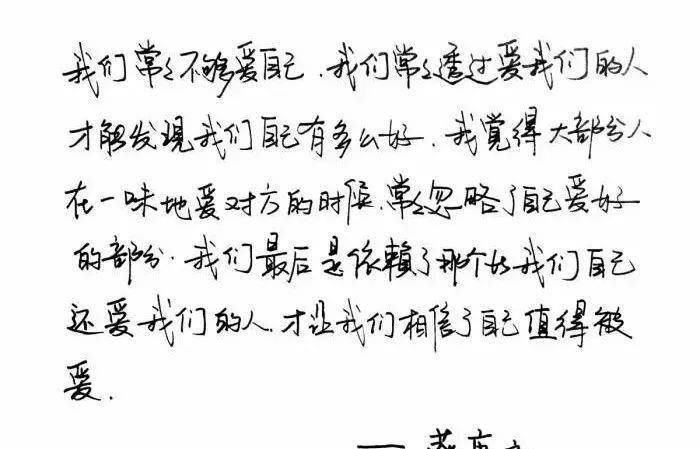 我们常々不够爱自己.我们常々透过爱我们的人
才能发现我们自己有多么好.我觉得大部分人
在一味地爱对方的时候.常々忽略了自己爱好
的部分.我们最后是依赖了那个比我们自己
还爱我们的人.才让我们相信了自己值得被
爱.
——